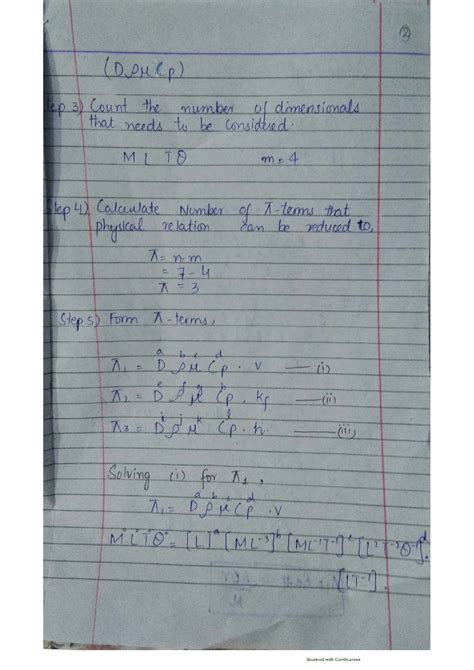 2
(D ρ μ Cp)
ep 3) Count the number of dimensionals
that needs to be considred.
M L T θ m = 4
Step 4) Calculate Number of π-terms that
physical relation can be reduced to,
π = n-m
= 7-4
π = 3
Step 5) Form π-terms,
π₁ = D^a ρ^b μ^c Cp^d . V — (i)
π₂ = D^e ρ^f μ^g Cp^h . kf — (ii)
π₃ = D^i ρ^j μ^k Cp^l . h — (iii)
Solving (i) for π₁,
π₁ = D^a ρ^b μ^c Cp^d . V
M°L°T°θ° = [L]^a [ML⁻³]^b [ML⁻¹T⁻¹]^c [L²T⁻²θ⁻¹]^d.
[LT⁻¹]
Scanned with CamScanner